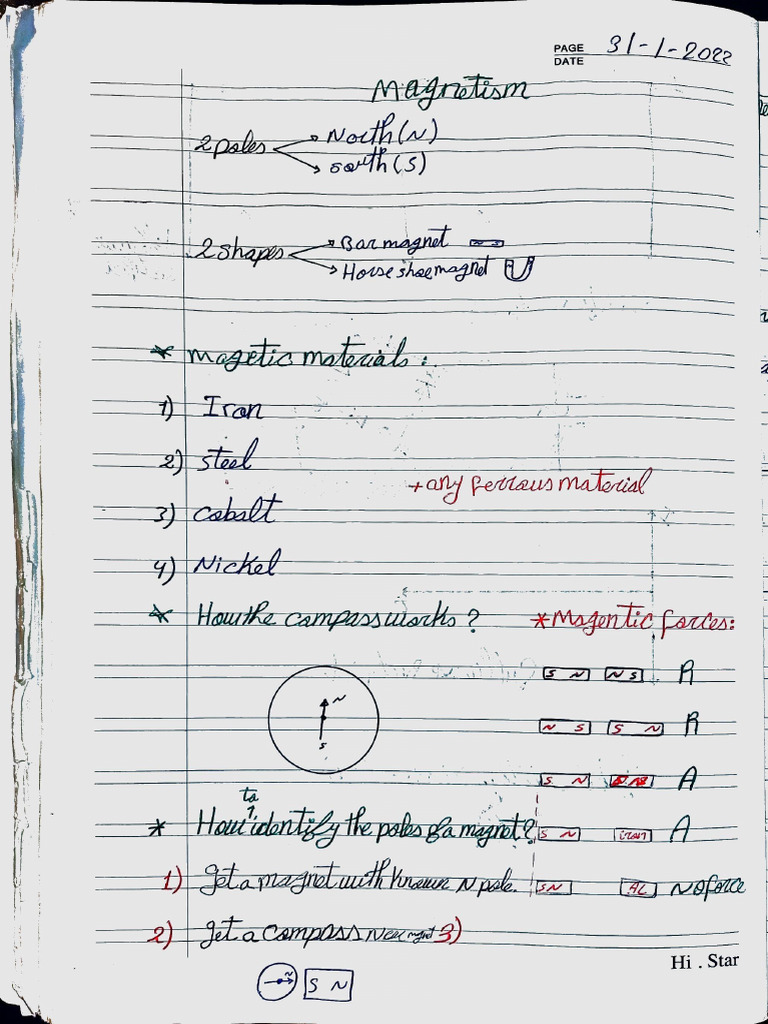 PAGE
DATE
31-1-2022
Magnetism
2 poles
North (N)
South (S)
2 shapes
Bar magnet
Horse shoe magnet
* magetic materials :
1) Iron
2) steel
+ any ferrous material
3) cobalt
4) Nickel
* How the compass works ?
* Magentic forces:
S N N S R
N S S N R
N
S
S N A
to
* How identify the poles of a magnet?
S N iron A
1) Get a magnet with known N pole.
SN AL No force
2) Get a compass near magnet 3)
N S N
Hi . Star